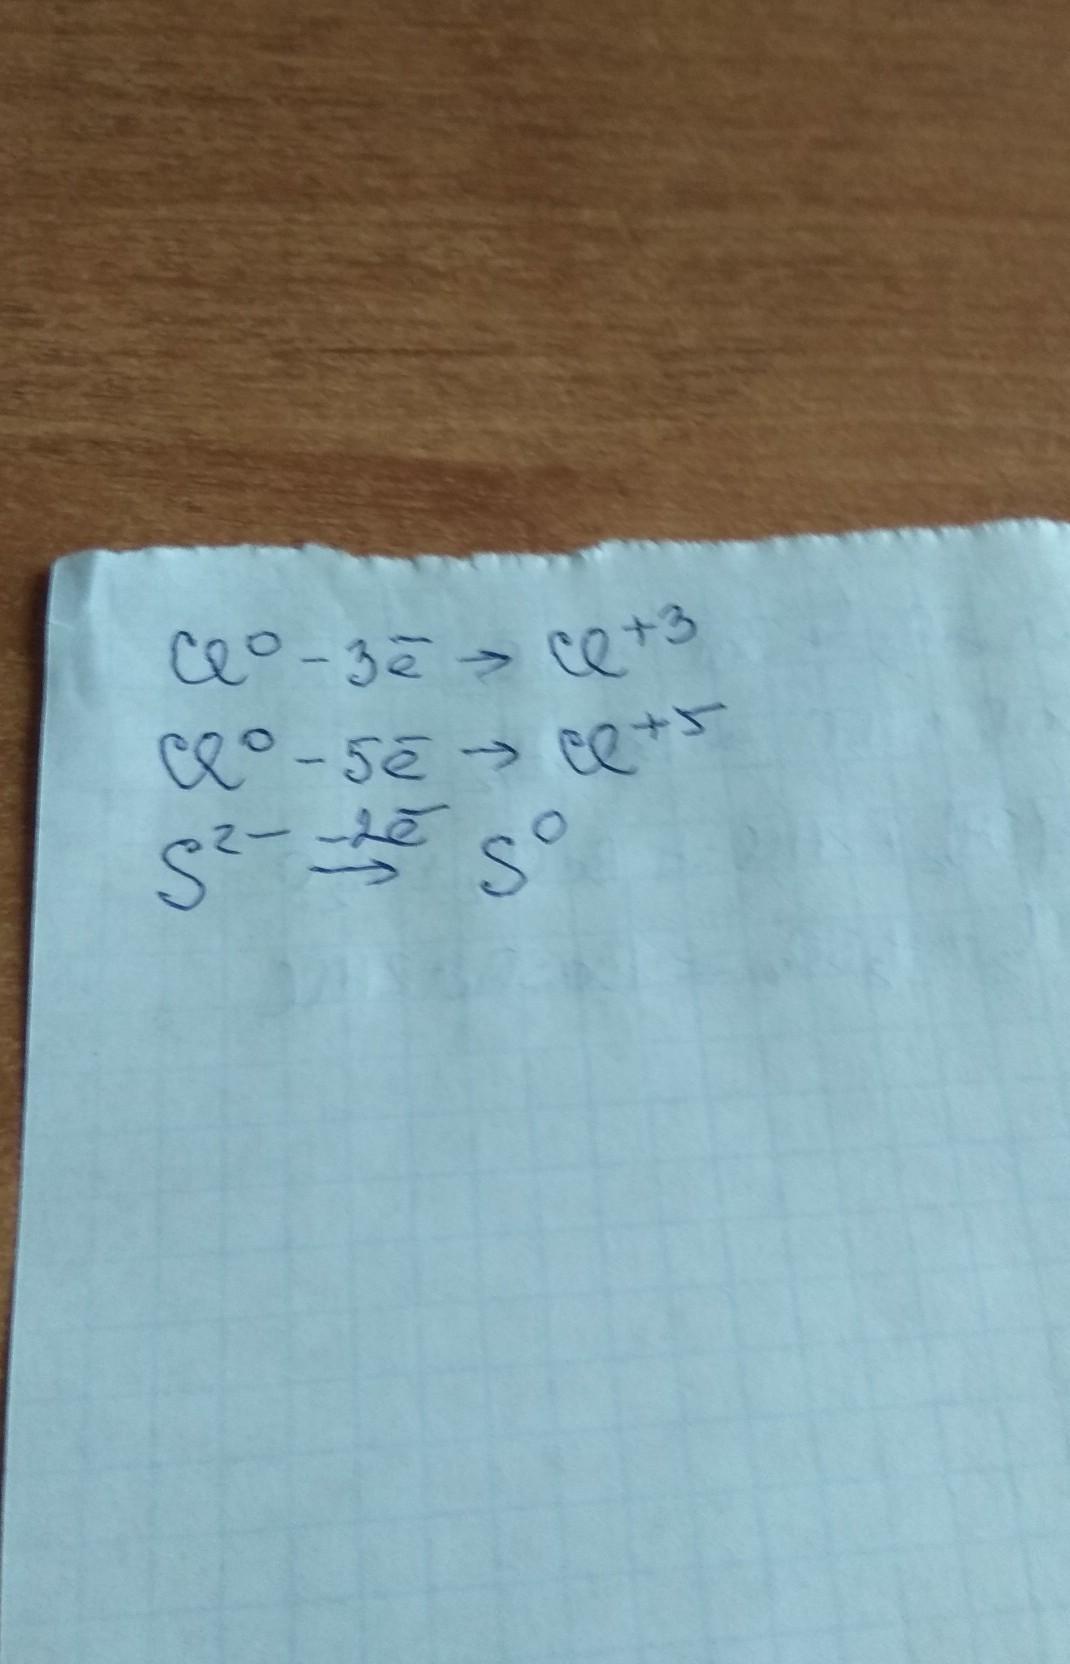 Cl⁰ - 3ē → Cl⁺³
Cl⁰ - 5ē → Cl⁺⁵
S²⁻ -2ē → S⁰